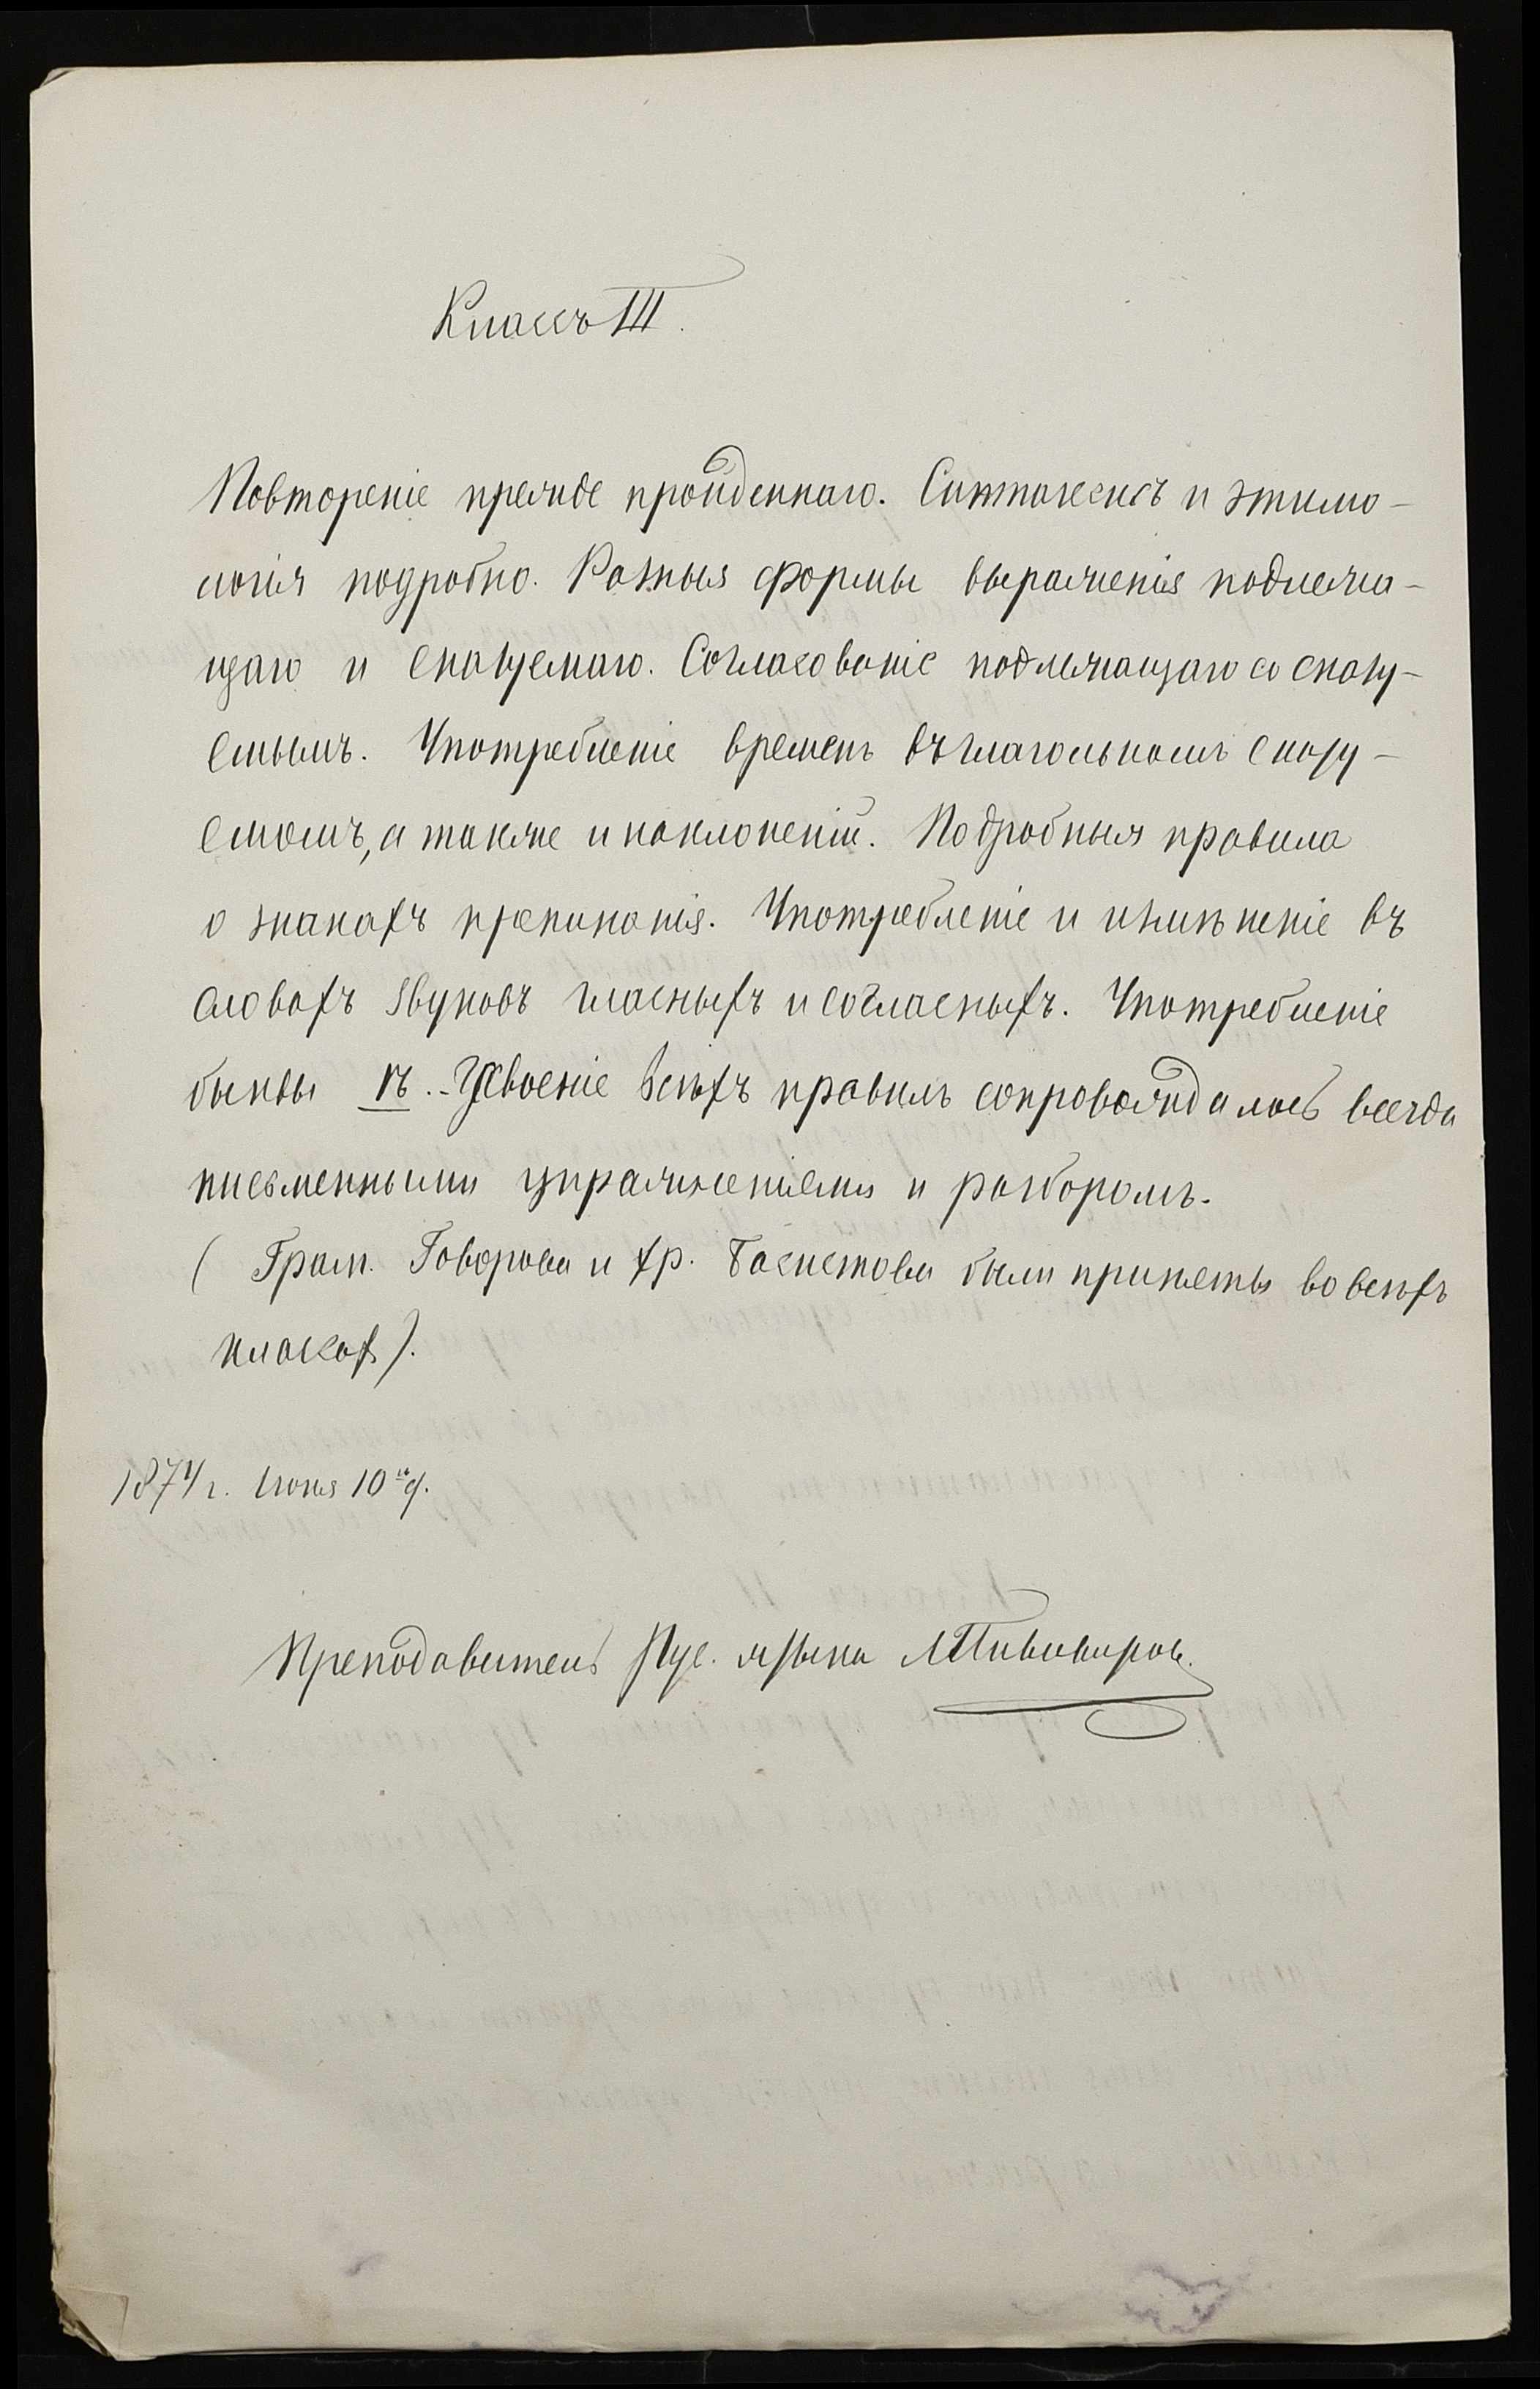 Классъ III.
Повтореніе прежде пройденнаго. Синтаксисъ и этимо-
логія подробно. Разныя формы выраженія подлежа-
щаго и сказуемаго. Согласованіе подлежащаго со сказу-
емымъ. Употребленіе временъ въ глагольномъ сказу-
емомъ, а также и наклоненій. Подробныя правила
о знакахъ препинанія. Употребленіе и измѣненіе въ
словахъ звуковъ гласныхъ и согласныхъ. Употребленіе
буквы ѣ. - Усвоеніе всѣхъ правилъ сопровождалось всегда
письменными упражненіями и разборомъ.
( Грам. Говорова и хр. Басистова были приняты во всѣхъ
класахъ).
1874 г. Іюня 10го д.
Преподаватель Рус. языка